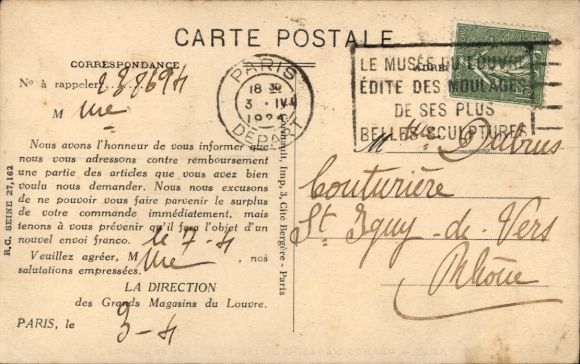 CARTE POSTALE
CORRESPONDANCE
Nº à rappeler 238694
M me
Nous avons l'honneur de vous informer que
nous vous adressons contre remboursement
une partie des articles que vous avez bien
voulu nous demander. Nous nous excusons
de ne pouvoir vous faire parvenir le surplus
de votre commande immédiatement, mais
tenons à vous prévenir qu'il fera l'objet d'un
nouvel envoi franco. le 7-4
Veuillez agréer, M me, nos
salutations empressées.
LA DIRECTION
des Grands Magasins du Louvre.
PARIS, le 3-4
R.C. SEINE 27,162
Imp, 3, Cité Bergère - Paris
PARIS
18 30
3 IV
DÉPART
LE MUSÉE DU LOUVRE
ÉDITE DES MOULAGES
DE SES PLUS
BELLES SCULPTURES
ADRESSE
M me Dubrus
Couturière
St Iguy-de-Vers
Rhône